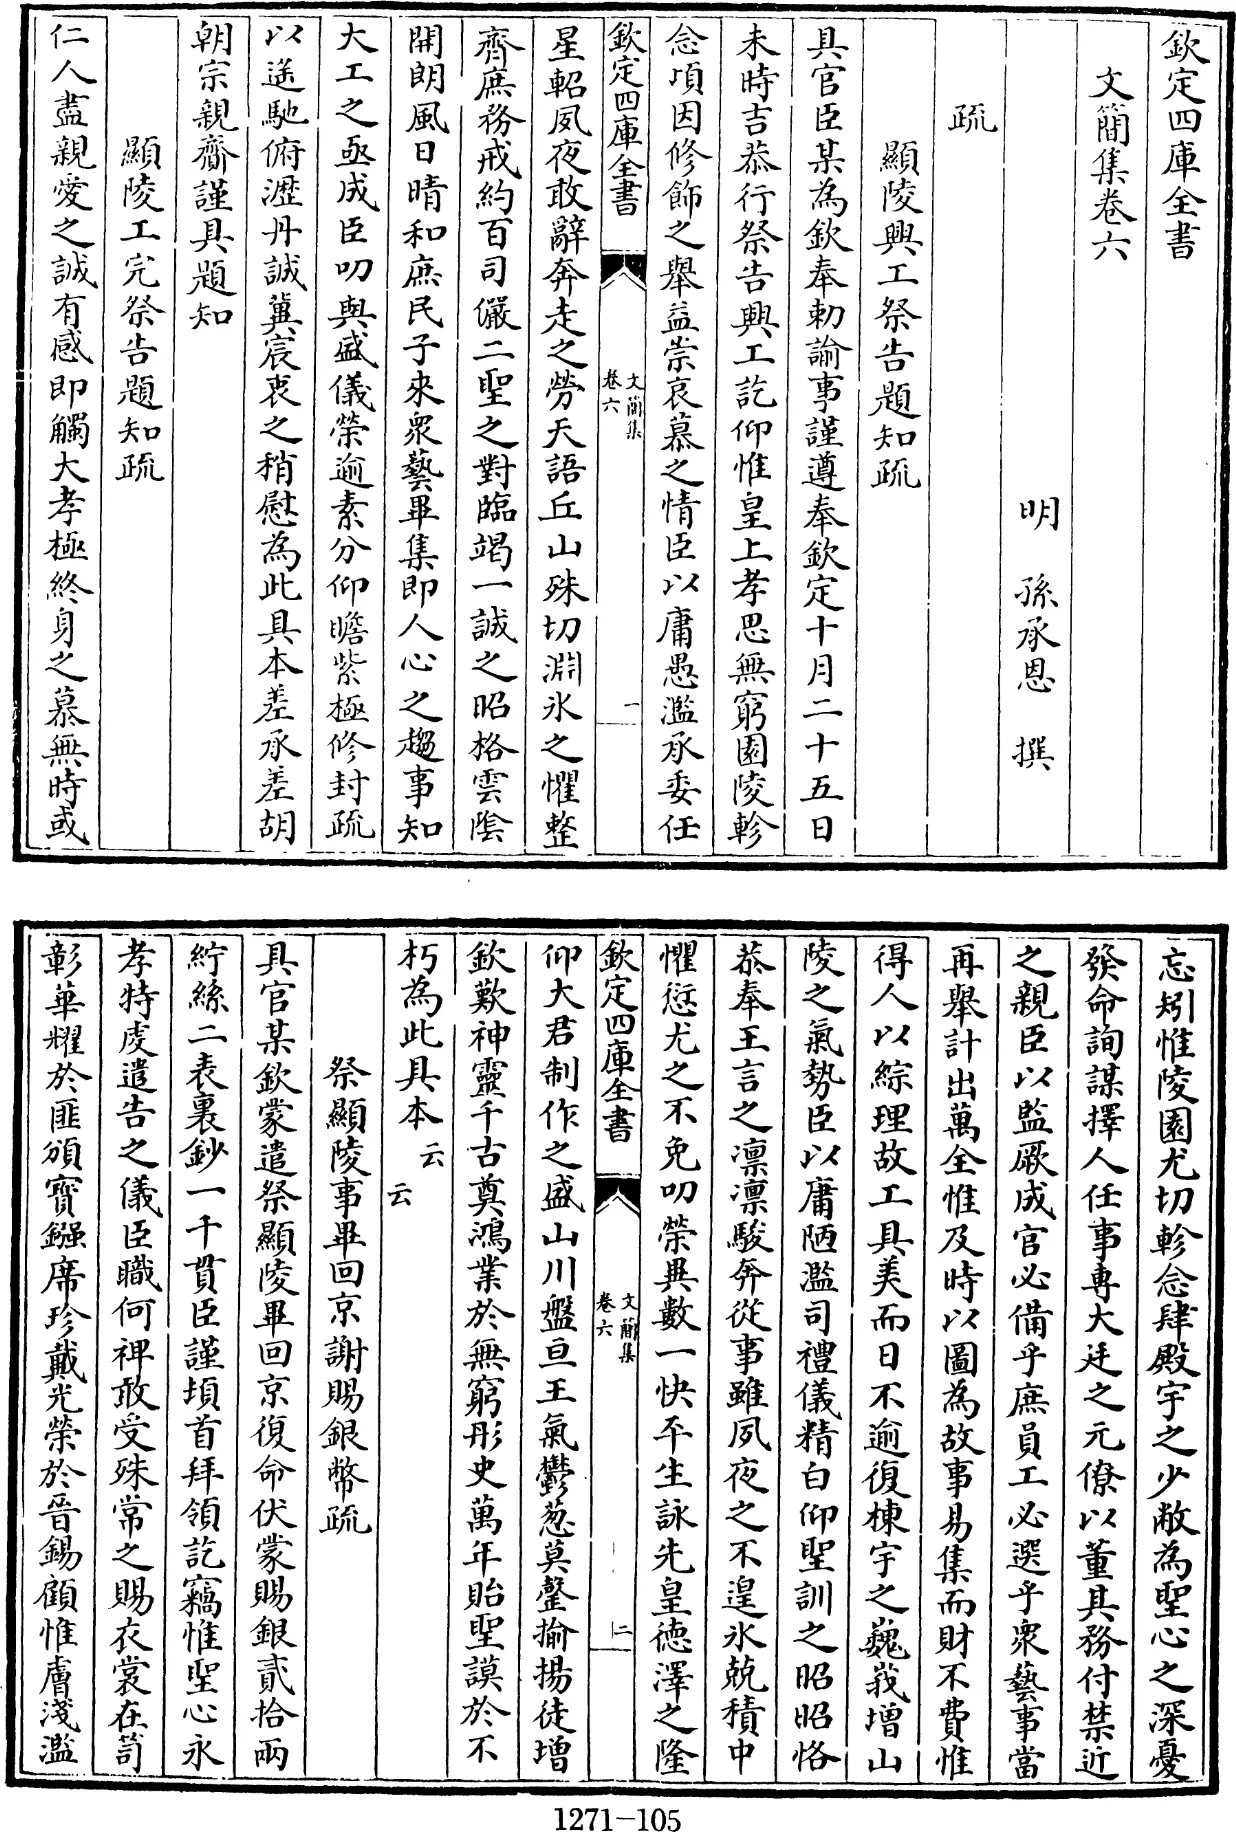 欽定四庫全書
文簡集卷六
明 孫承恩 撰
疏
顯陵興工祭告題知疏
具官臣某為欽奉勅諭事謹遵奉欽定十月二十五日
未時吉恭行祭告興工訖仰惟皇上孝思無窮園陵軫
念頃因修飾之舉益崇哀慕之情臣以庸愚濫承委任
欽定四庫全書
文簡集
卷六
一
星軺夙夜敢辭奔走之勞天語丘山殊切淵氷之懼整
齊庶務戒約百司儼二聖之對臨竭一誠之昭格雲陰
開朗風日晴和庶民子來衆藝畢集即人心之趨事知
大工之亟成臣叨與盛儀榮逾素分仰瞻紫極修封疏
以遙馳俯瀝丹誠冀宸衷之稍慰為此具本差承差胡
朝宗親齎謹具題知
顯陵工完祭告題知疏
仁人盡親愛之誠有感即觸大孝極終身之慕無時或
忘矧惟陵園尤切軫念肆殿宇之少敝為聖心之深憂
發命詢謀擇人任事専大廷之元僚以董其務付禁近
之親臣以監厥成官必備乎庶員工必選乎衆藝事當
再舉計出萬全惟及時以圖為故事易集而財不費惟
得人以綜理故工具美而日不逾復棟宇之巍峩增山
陵之氣勢臣以庸陋濫司禮儀精白仰聖訓之昭昭恪
恭奉王言之凛凛駿奔從事雖夙夜之不遑氷兢積中
懼愆尤之不免叨榮異數一快平生詠先皇德澤之隆
欽定四庫全書
文簡集
卷六
二
仰大君制作之盛山川盤亘王氣鬱葱莫罄揄揚徒增
欽歎神靈千古奠鴻業於無窮彤史萬年貽聖謨於不
朽為此具本云云
祭顯陵事畢回京謝賜銀幣疏
具官某欽蒙遣祭顯陵畢回京復命伏蒙賜銀貳拾兩
紵絲二表裏鈔一千貫臣謹頃首拜領訖竊惟聖心永
孝特虔遣告之儀臣職何禆敢受殊常之賜衣裳在笥
彰華耀於匪頒寳鏹席珍戴光榮於晉錫顧惟膚淺濫
1271-105